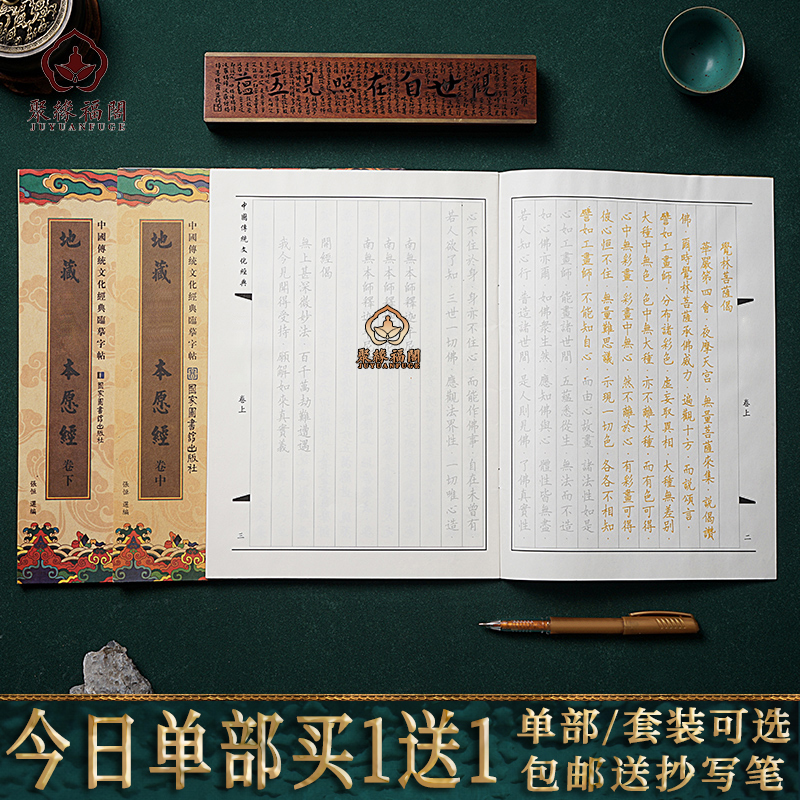 聚緣福閣
JUYUANFUGE
觀世自在
地藏
本愿經
卷下
中國傳統文化經典臨摹字帖
國家圖書館出版社
張恒 選編
地藏
本愿經
卷中
中國傳統文化經典臨摹字帖
國家圖書館出版社
張恒 選編
覺林菩薩偈
華嚴第四會·夜摩天宮·無量菩薩來集·說偈讚
佛·爾時覺林菩薩承佛威力·遍觀十方·而說頌言·
譬如工畫師·分布諸彩色·虛妄取異相·大種無差別·
大種中無色·色中無大種·亦不離大種·而有色可得·
心中無彩畫·彩畫中無心·然不離於心·有彩畫可得·
彼心恒不住·無量難思議·示現一切色·各各不相知·
譬如工畫師·不能知自心·而由心故畫·諸法性如是·
心如工畫師·能畫諸世間·五蘊悉從生·無法而不造·
如心佛亦爾·如佛眾生然·應知佛與心·體性皆無盡·
若人知心行·普造諸世間·是人則見佛·了佛真實性·
卷上
二
心不住於身·身亦不住心·而能作佛事·自在未曾有·
若人欲了知·三世一切佛·應觀法界性·一切唯心造·
南無本師釋
南無本師釋
南無本師釋
開經偈
無上甚深微妙法·百千萬劫難遭遇
我今見聞得受持·願解如來真實義
中國傳統文化經典
卷上
三
聚緣福閣
JUYUANFUGE
今日单部买1送1
单部/套装可选
包邮送抄写笔